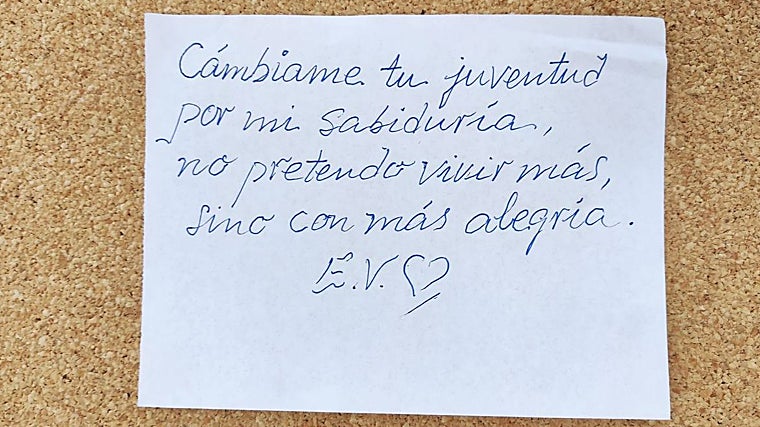 Cámbiame tu juventud
por mi sabiduría,
no pretendo vivir más,
sino con más alegría.
E.V.♡